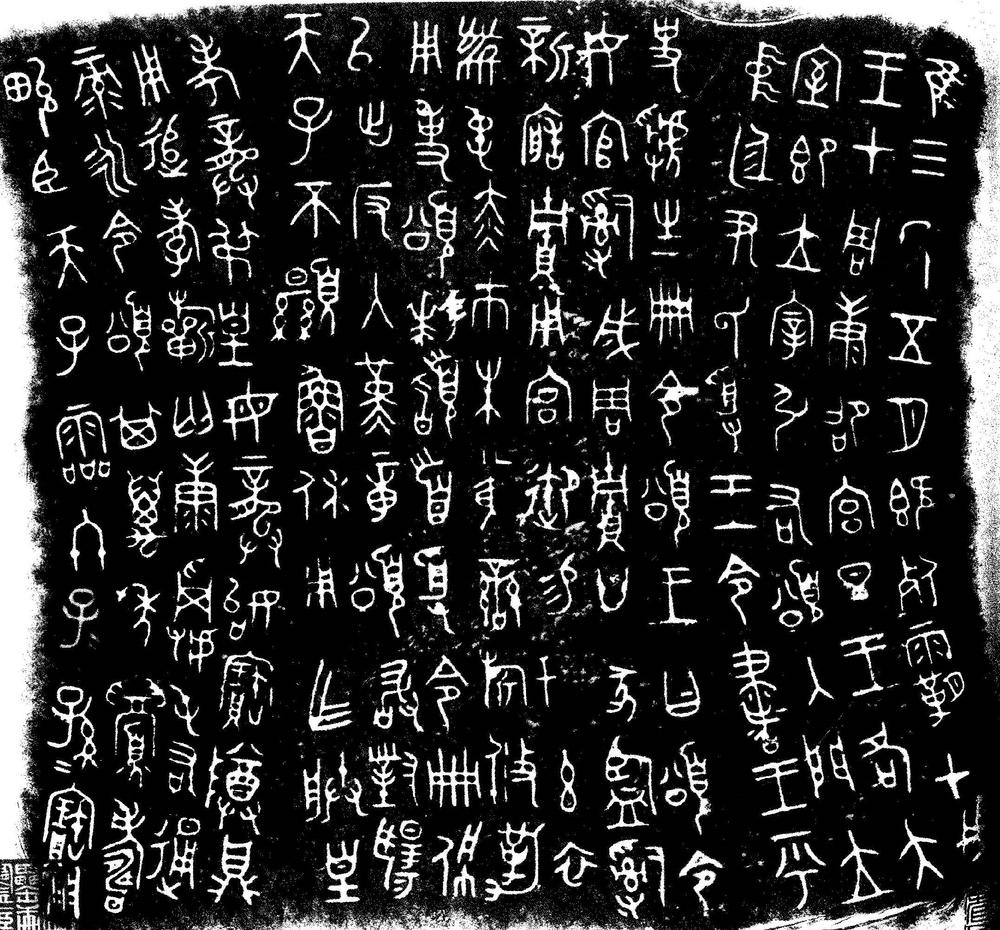 隹三年五月既死霸甲戌
王才周康卲宮旦王各大
室即立宰引右頌入門立
中廷尹氏受王令書王乎
史虢生冊令頌王曰頌令
女官𤔲成周貯廿家監𤔲
新造貯用宮御易女玄衣
黹屯赤市朱黃鑾旂攸勒
用事頌拜稽首受令冊佩
以出反入堇章頌敢對揚
天子不顯魯休用乍朕皇
考龏弔皇母龏始寶尊鼎
用追孝祈匄康𩁹屯右通
彔永令頌其萬年眉壽
畯臣天子霝冬子孫＝寶用